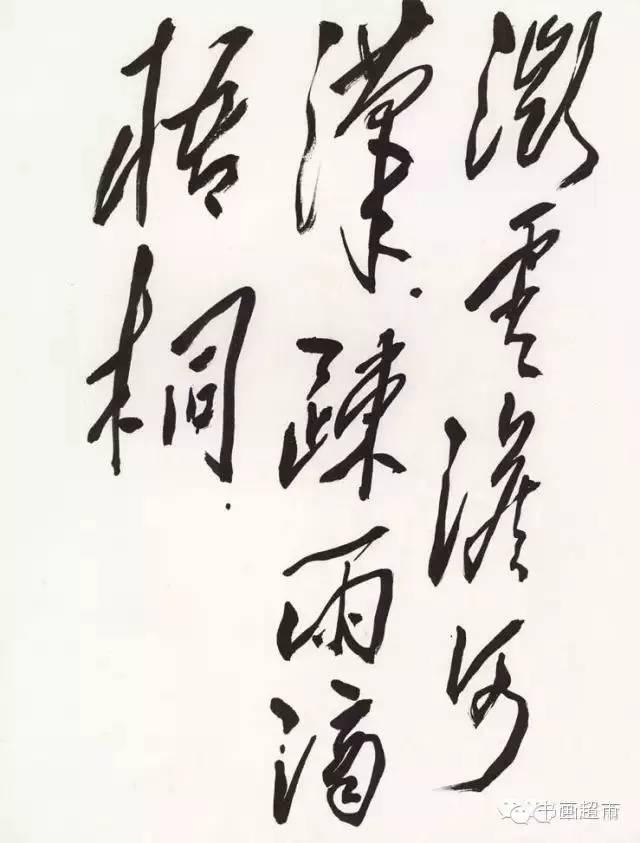 微雲澹河
漢.疎雨滴
梧桐.
书画超市